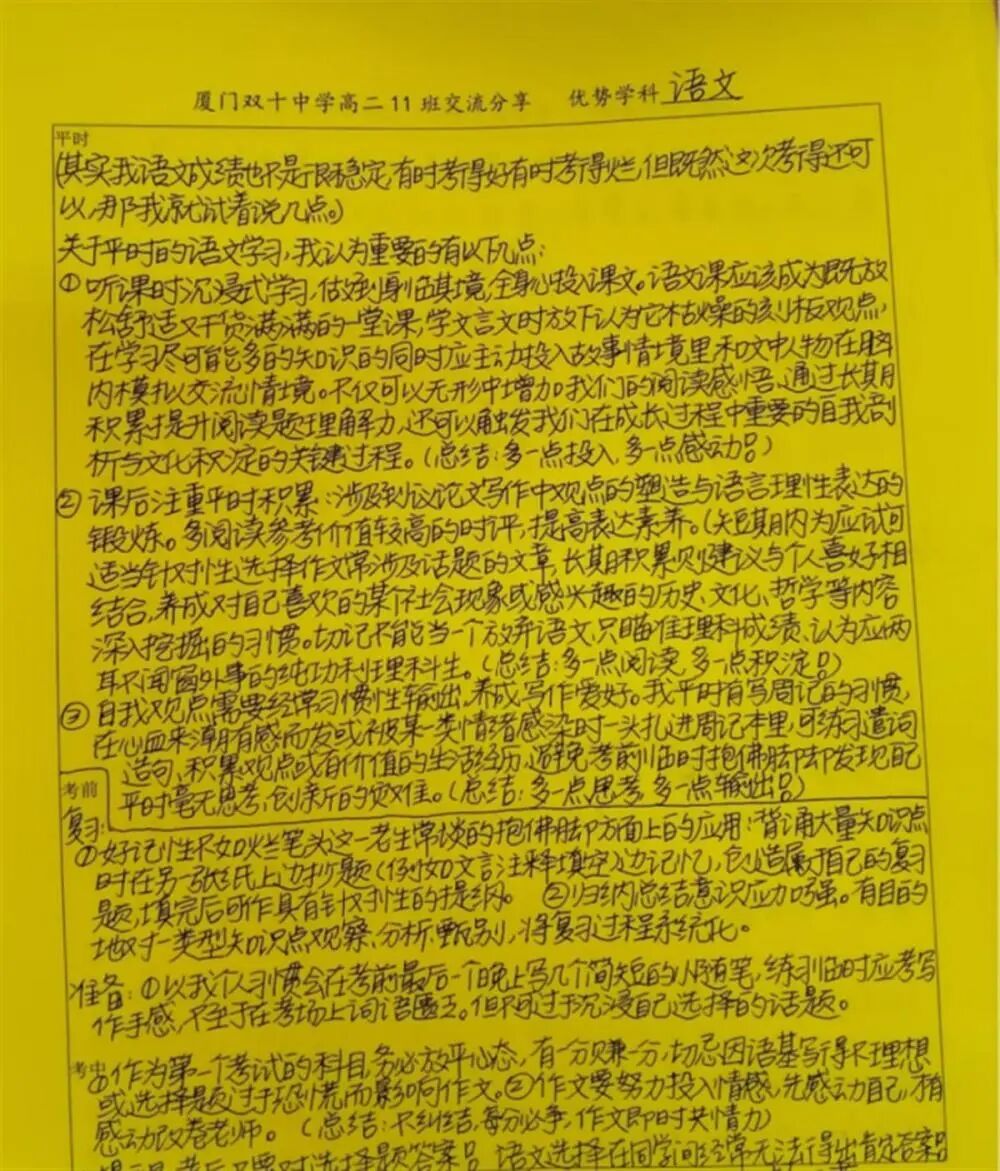 厦门双十中学高二11班交流分享 优势学科 语文
平时
(其实我语文成绩也不是很稳定,有时考得好有时考得烂,但既然这次考得还可
以,那我就试着说几点。)
关于平时的语文学习,我认为重要的有以下几点:
①听课时沉浸式学习,做到身临其境,全身心投入课文。语文课应该成为既放
松舒适又干货满满的一堂课,学文言文时放下认为它枯燥的刻板观点,
在学习尽可能多的知识的同时应主动投入故事情境里和文中人物在脑
内模拟交流情境。不仅可以无形中增加我们的阅读感悟、通过长期
积累提升阅读题理解力,还可以触发我们在成长过程中重要的自我剖
析与文化积淀的关键过程。(总结:多一点投入,多一点感动。)
②课后注重平时积累:涉及到议论文写作中观点的塑造与语言理性表达的
锻炼。多阅读参考价值较高的时评,提高表达素养。(短期内为应试可
适当针对性选择作文常涉及话题的文章,长期积累则建议与个人喜好相
结合,养成对自己喜欢的某个社会现象或感兴趣的历史、文化、哲学等内容
深入挖掘的习惯。切记不能当一个放弃语文,只瞄准理科成绩、认为应两
耳不闻窗外事的纯功利理科生。(总结:多一点阅读,多一点积淀。)
③自我观点需要经常习惯性输出,养成写作爱好。我平时有写周记的习惯,
在心血来潮有感而发或被某一类情绪感染时一头扎进周记本里,可练习遣词
造句、积累观点或有价值的生活经历,避免考前临时抱佛脚却发现自己
平时毫无思考,创新的效难。(总结:多一点思考,多一点输出。)
考前
复习:
①好记性不如烂笔头这一老生常谈的抱佛脚方面上的应用:背诵大量知识点
时在另一张纸上边抄题(例如文言注释填空)边记忆,创造属于自己的复习
题,填完后可作具有针对性的提纲。 ②归纳总结意识应加强。有目的
地对一类型知识点观察、分析、甄别,将复习过程系统化。
准备:①以我个人习惯会在考前最后一个晚上写几个简短的小随笔,练习临时应考写
作手感,不至于在考场上词语匮乏。但不可过于沉浸自己选择的话题。
考中
①作为第一个考试的科目,务必放平心态,有一分赚一分,切忌因语基写得不理想
或选择题过于恐慌而影响作文。②作文要努力投入情感,先感动自己,才有
感动改卷老师。(总结:不纠结,每分必争,作文即时共情力)
语文选择在同学间经常无法得出肯定答案。